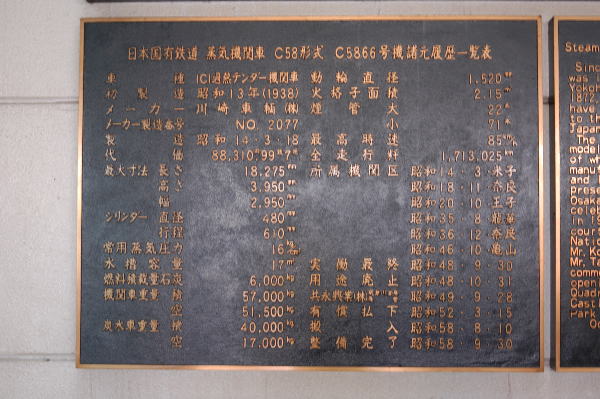 日本国有鉄道 蒸気機関車 C58形式 C5866号機諸元履歴一覧表
車種 1C1過熱テンダー機関車 動輪直径 1,520㎜
初製造 昭和13年(1938) 火格子面積 2.15㎡
メーカー 川崎車輛㈱ 煙管 大 22本
メーカー製造番号 NO. 2077 小 71本
製造 昭和14・3・18 最高時速 85㎞/h
代価 88,310円99銭7厘 全走行粁 1,713,025㎞
最大寸法 長さ 18,275㎜ 所属機関区 昭和14・3・米子
高さ 3,950㎜ 昭和18・11・奈良
幅 2,950㎜ 昭和20・10・王子
シリンダー 直径 480㎜ 昭和35・8・龍華
行程 610㎜ 昭和36・12・奈良
常用蒸気圧力 16 昭和46・10・亀山
水槽容量 17㎥ 実働最終 昭和48・9・30
燃料積載量石炭 6,000㎏ 用途廃止 昭和48・10・31
機関車重量 積 57,000㎏ 共永興業㈱ 昭和49・9・28
空 51,500㎏ 有償払下 昭和52・3・15
炭水車重量 積 40,000㎏ 搬入 昭和58・8・10
空 17,000㎏ 整備完了 昭和58・9・30
Steam
Sinc
was i
Yokoh
1872,
have
to th
Japan
The
model
of wh
manu
and l
prese
Osaka
celeb
In 19
court
Natio
Mr. Ko
Mr. Ta
commo
openi
Quad
Castl
Park
Oc